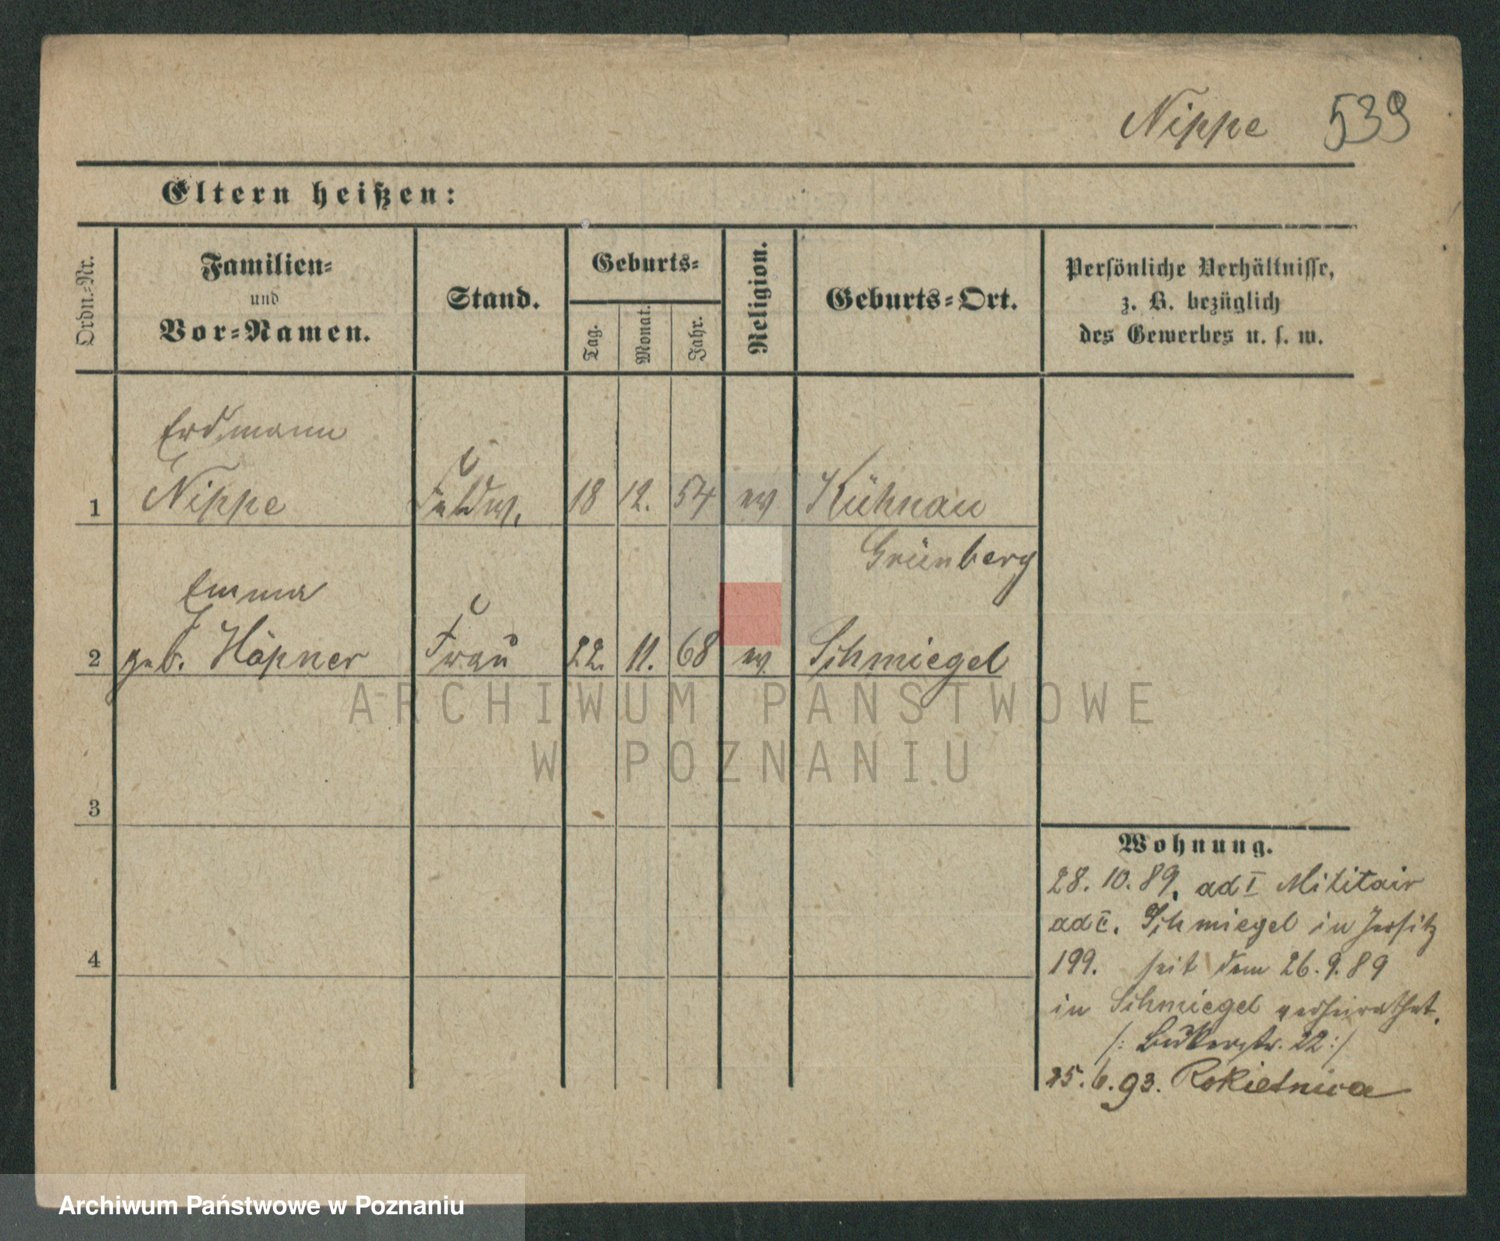 Nippe 539
Eltern heißen:
Ordn.-Nr.
Familien-
und
Vor-Namen.
Stand.
Geburts-
Tag.
Monat.
Jahr.
Religion.
Geburts-Ort.
Persönliche Verhältnisse,
z. B. bezüglich
des Gewerbes u. s. w.
Erdmann
1 Nippe Feldw. 18 12. 54 ev Kühnau
Grünberg
Emma
2 geb. Höpner Frau 22. 11. 68 ev. Schmiegel
ARCHIWUM PAŃSTWOWE
W POZNANIU
3
4
Wohnung.
28. 10. 89. ad I Militair
ad Schmiegel in Jersitz
199. seit dem 26. 9. 89
in Schmiegel verheirathet.
/: Bukerstr. 22 :/
25. 6. 93. Rokietnica
Archiwum Państwowe w Poznaniu